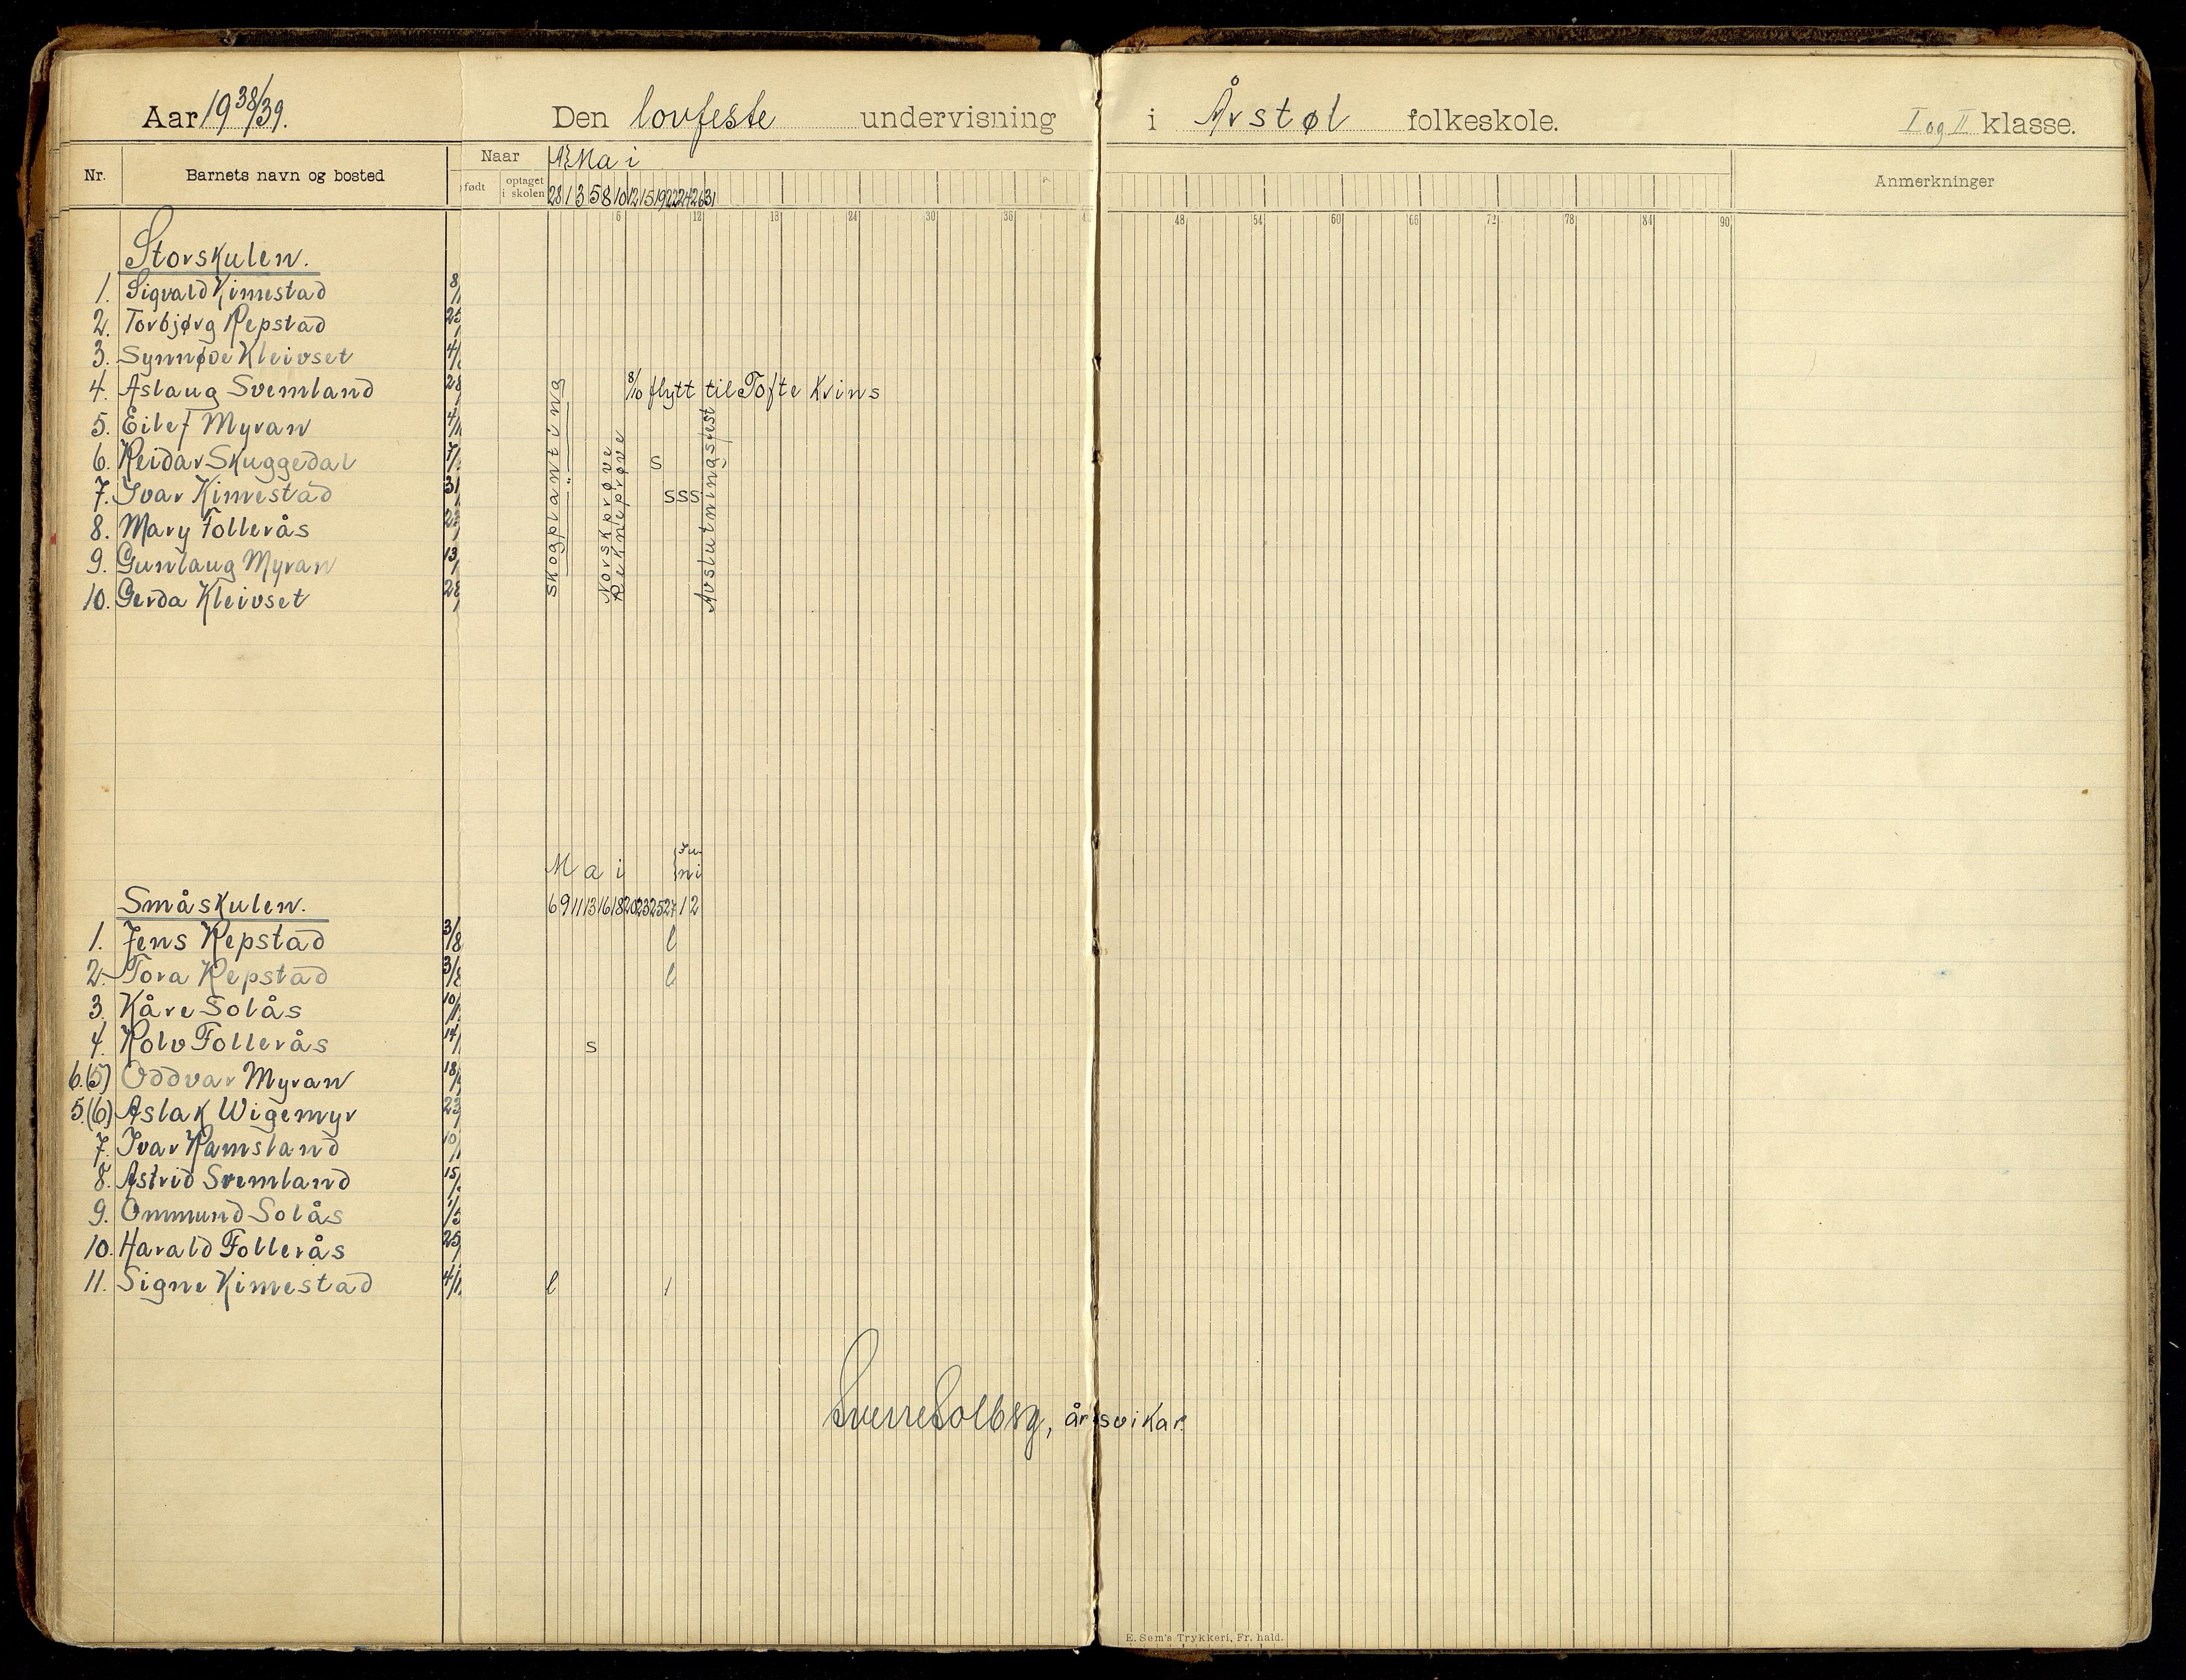 Aar 19 38/39. Den lovfeste undervisning i Årstøl folkeskole. I og II klasse.
Nr. Barnets navn og bosted Naar Mai Anmerkninger
født optaget i skolen 28 1 3 5 8 10 12 15 19 22 24 26 31
6 12 18 24 30 36 48 54 60 66 72 78 84 90
Storskulen.
1. Sigvald Kimestad 8/
2. Torbjørg Repstad 25
3. Synnøve Kleivset 4/
4. Aslaug Svemland 28 8/10 flytt til Tofte Kvins
5. Eilef Myran 4/
6. Reidar Skuggedal 7/ s
7. Ivar Kimestad 31 s s s
8. Mary Follerås
9. Gunlaug Myran 13
10. Gerda Kleivset 28
Skogplanting
"
Norskprøve
Rekneprøve
Avslutningsfest
Mai Juni
Småskulen. 6 9 11 13 16 18 20 23 25 27 1 2
1. Jens Repstad 3/8 l
2. Tora Repstad 3/8 l
3. Kåre Solås 10/
4. Rolv Follerås 14/ s
6.(5) Oddvar Myran 18/
5.(6) Aslak Wigemyr 23
7. Ivar Ramsland 10/
8. Astrid Svemland 15/
9. Ommund Solås 1/5
10. Harald Follerås 25
11. Signe Kimestad 4/1 l /
Sverre Solberg, årsvikar.
E. Sem's Trykkeri, Fr. hald.